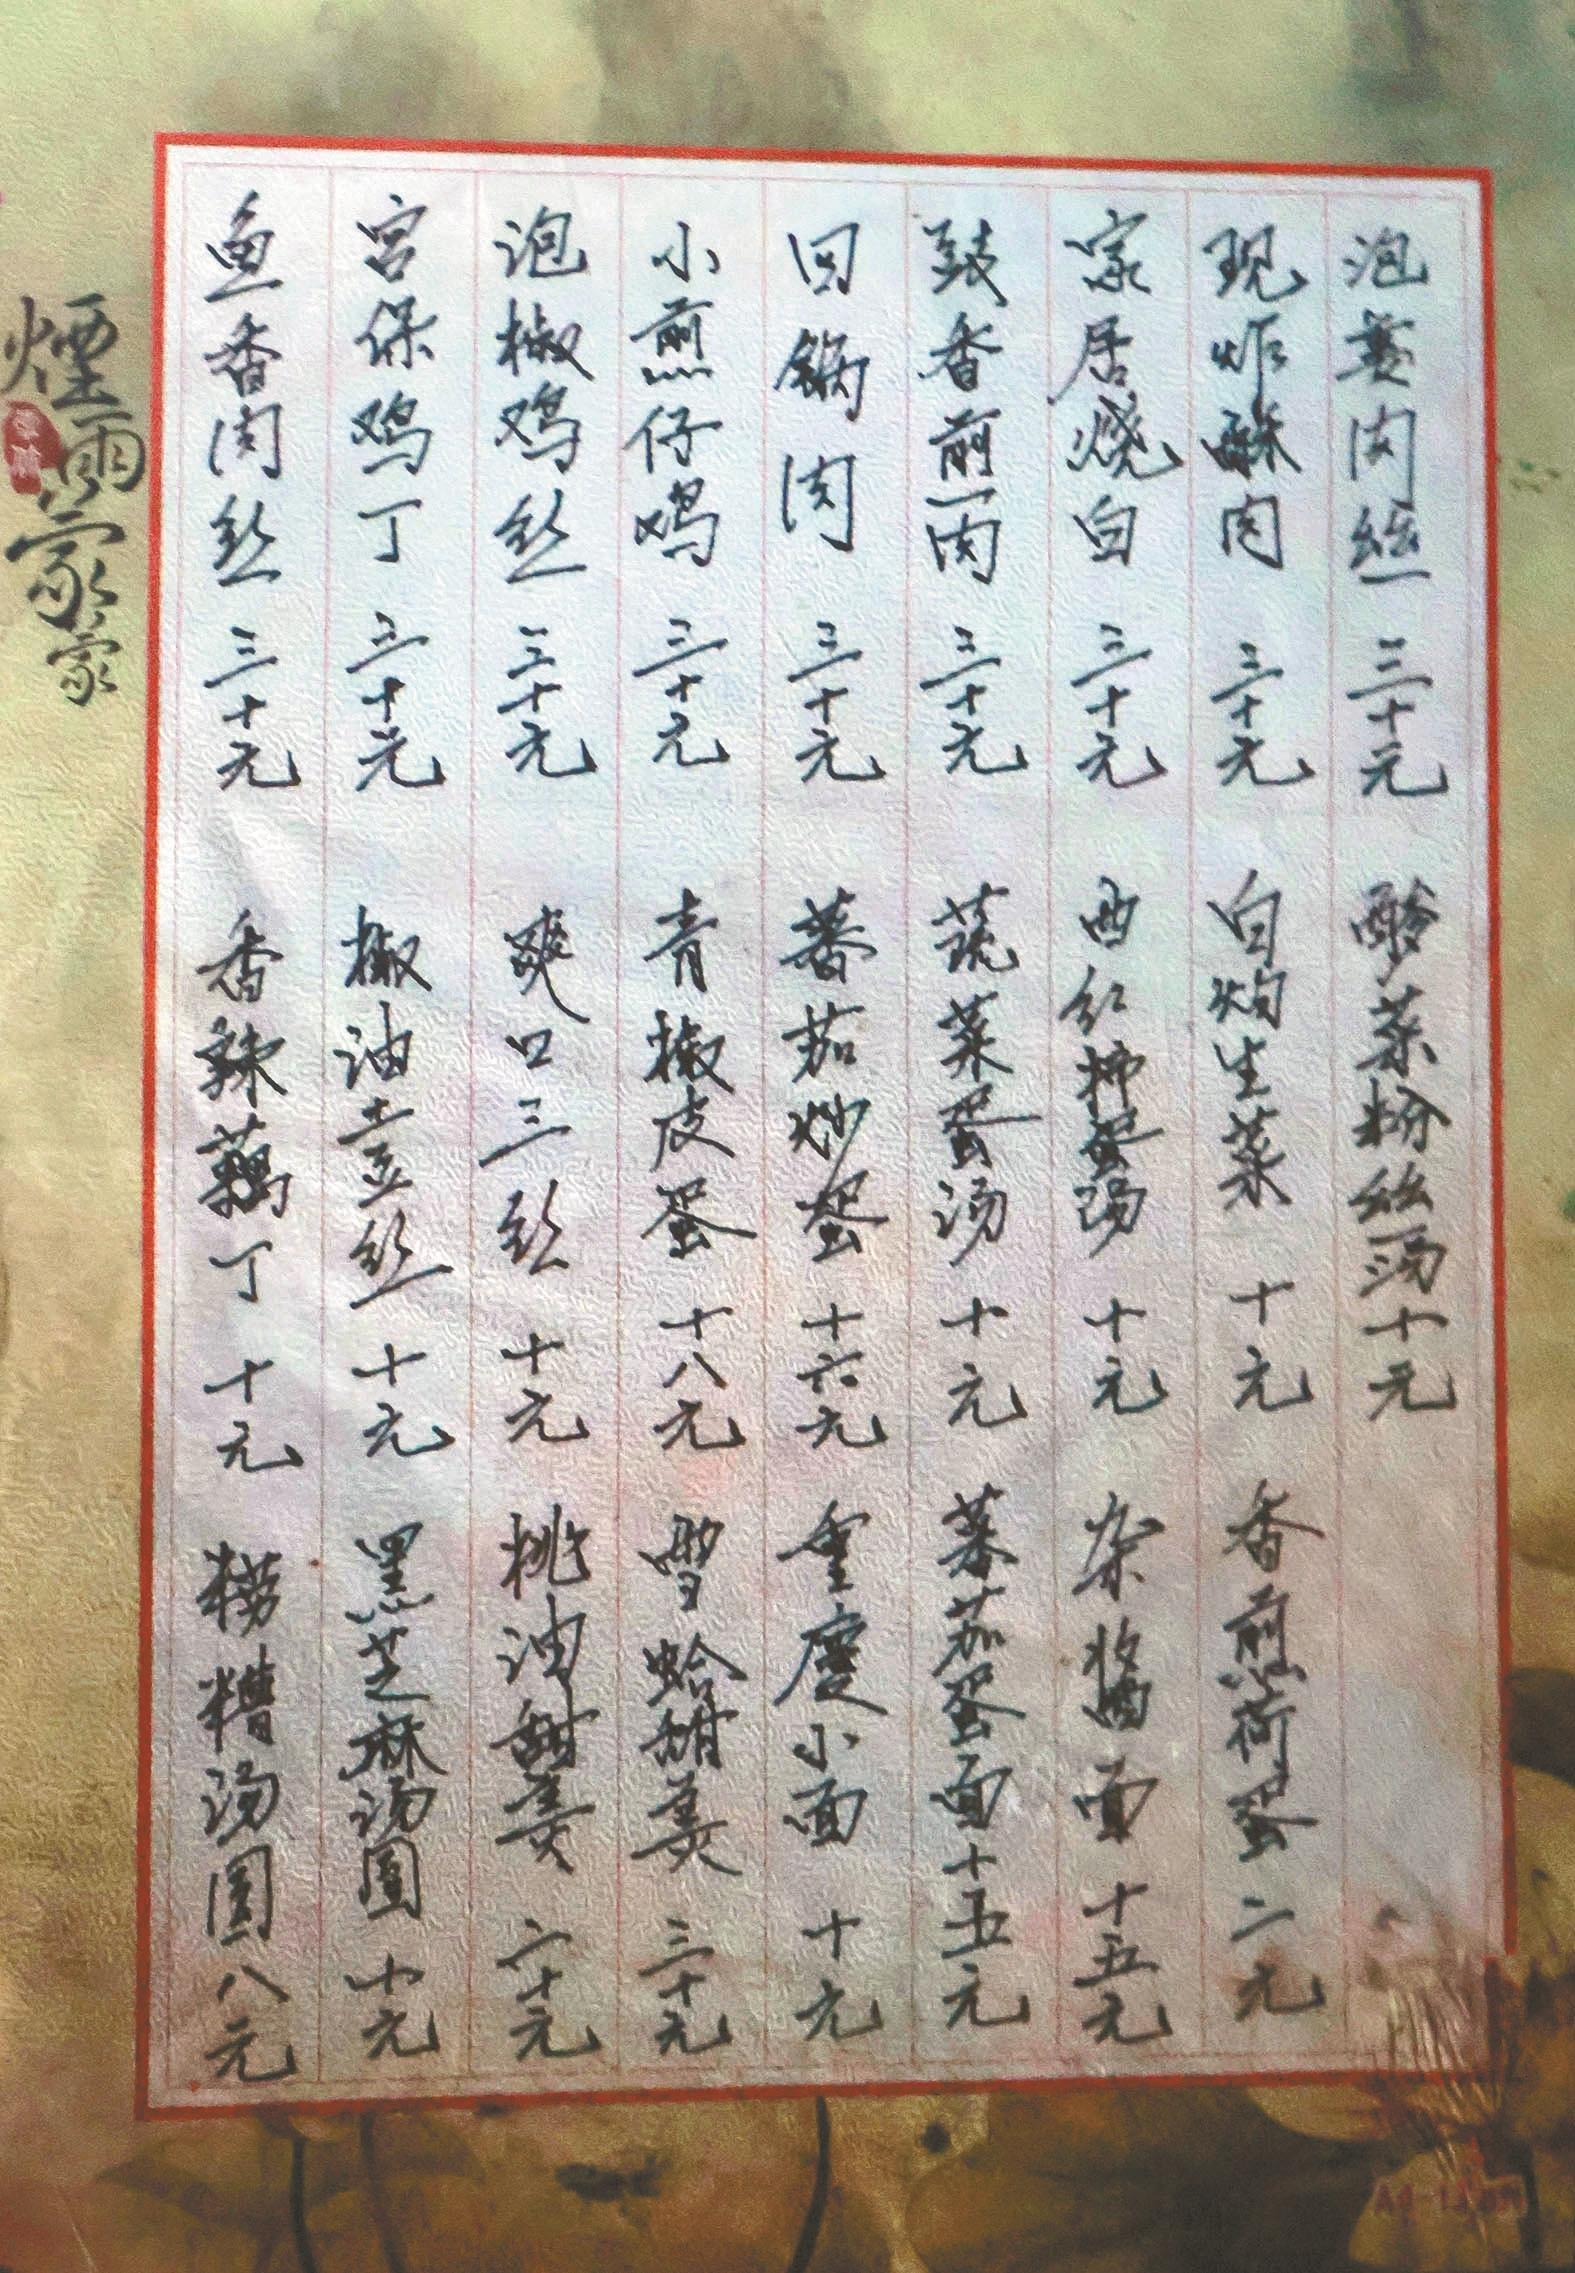 煙雨蒙
鱼香肉丝 三十元 香辣藕丁 十元 糟汤圆 八元
宫保鸡丁 三十元 椒油丝 十元 黑芝麻汤圆 十元
泡椒鸡丝 三十元 爽口三丝 十元 桃油甜羹 二十元
小煎仔鸡 三十元 青椒皮蛋 十八元 雪蛤甜羹 三十元
回锅肉 三十元 蕃茄炒蛋 十六元 重慶小面 十元
鼓香煎肉 三十元 蔬菜蛋汤 十元 蕃茄蛋面 十五元
家居烧白 三十元 西红柿蛋汤 十元 杂酱面 十五元
现炸酥肉 三十元 白灼生菜 十元 香煎荷蛋 二元
泡姜肉絲 三十元 酸菜粉絲汤 十元